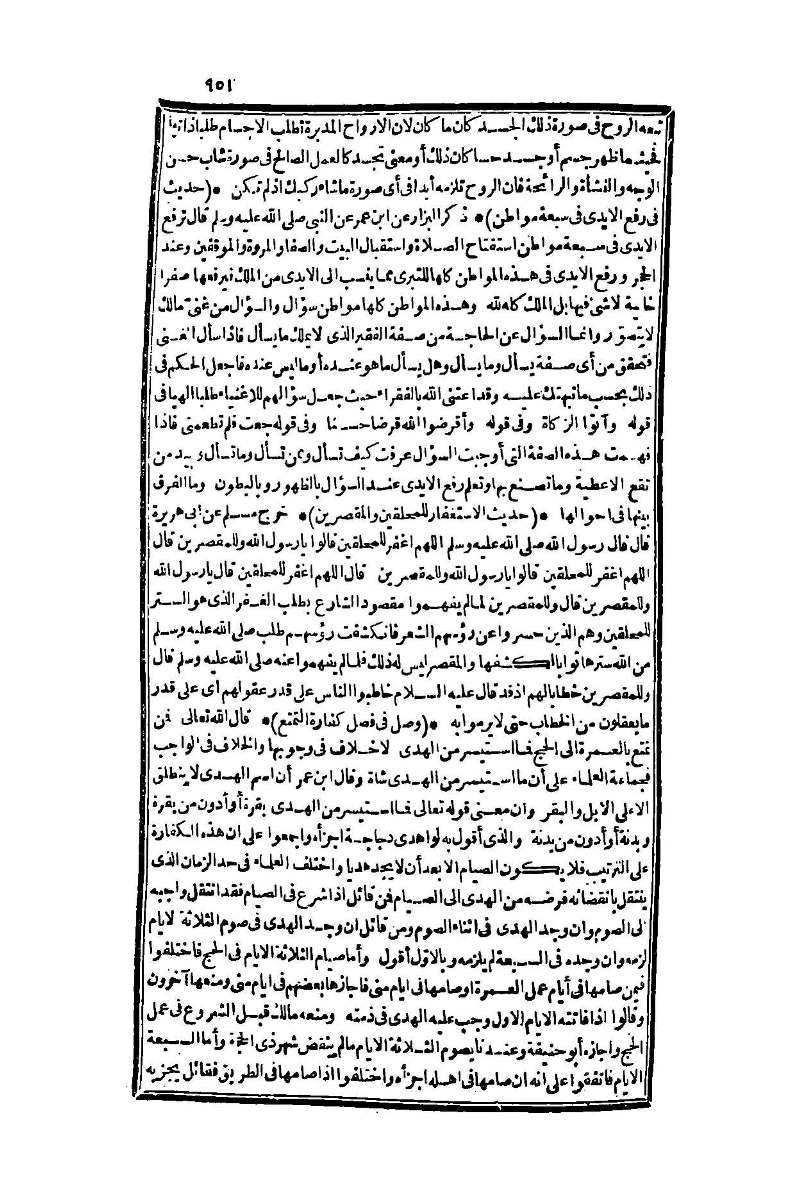 ٩٥١
تبعه الروح فى صورة ذلك الجسد كان ما كان لان الارواح المدبرة تطلب الاجسام طلبا ذاتيا
فحيثما ظهر جسم أو جسد حسا كان ذلك أو معنى تجسد كالعمل الصالح فى صورة شاب حسن
الوجه والنشأة والرائحة فان الروح تلزمه أبدا فى أى صورة ما شاء ركبك اذ لم تكن *(حديث
فى رفع الايدى فى سبعة مواطن)* ذكر البزار عن ابن عمر عن النبى صلى الله عليه وسلم قال ترفع
الايدى فى سبعة مواطن استفتاح الصلاة واستقبال البيت والصفا والمروة والموقفين وعند
الحجر ورفع الايدى فى هذه المواطن كلها للتبرى مما ينسب الى الايدى من الملك فيرفعها صفرا
خالية لا شئ فيها بل الملك كله لله وهذه المواطن كلها مواطن سؤال والسؤال من غنى مالك
لا يتصور وانما السؤال عن الحاجة من صفة الفقير الذى لا يملك ما يسأل فاذا سأل الغنى
فتحقق من أى صفة يسأل وما يسأل وهل يسأل ما هو عنده أو ما ليس عنده فاجعل الحكم فى
ذلك بحسب ما نبهتك عليه وقد اعتنى الله بالفقراء حيث جعل سؤالهم للاغنياء طلبا الهيا فى
قوله وآتوا الزكاة وفى قوله وأقرضوا الله قرضا حسنا وفى قوله جعت فلم تطعمنى فاذا
فهمت هذه الصفة التى أوجبت السؤال عرفت كيف تسأل وممن تسأل وما تسأل وبيد من
تقع الاعطية وما تصنع بها وتعلم رفع الايدى عند السؤال بالظهور وبالبطون وما الفرق
بينها فى احوالها *(حديث الاستغفار للمحلقين والمقصرين)* خرج مسلم عن أبى هريرة
قال قال رسول الله صلى الله عليه وسلم اللهم اغفر للمحلقين قالوا يا رسول الله وللمقصرين قال
اللهم اغفر للمحلقين قالوا يا رسول الله وللمقصرين قال اللهم اغفر للمحلقين قال يا رسول الله
وللمقصرين قال وللمقصرين لما لم يفهموا مقصود الشارع بطلب الغفر الذى هو الستر
للمحلقين وهم الذين حسروا عن رؤسهم الشعر فانكشفت رؤسهم طلب صلى الله عليه وسلم
من الله سترها ثوابا لكشفها والمقصر ليس له ذلك فلما لم يفهموا عنه صلى الله عليه وسلم قال
وللمقصرين خطابا لهم اذ قد قال عليه السلام خاطبوا الناس على قدر عقولهم اى على قدر
ما يعقلون من الخطاب حتى لا يرموا به *(وصل فى فصل كفارة التمتع)* قال الله تعالى فمن
تمتع بالعمرة الى الحج فما استيسر من الهدى لا خلاف فى وجوبها والخلاف فى الواجب
فجماعة العلماء على أن ما استيسر من الهدى شاة وقال ابن عمر أن اسم الهدى لا ينطلق
الا على الابل والبقر وان معنى قوله تعالى فما استيسر من الهدى بقرة أو أدون من بقرة
وبدنة أو أدون من بدنة والذى أقول به لو اهدى دجاجة اجزأه واجمعوا على ان هذه الكفارة
على الترتيب فلا يكون الصيام الا بعد أن لا يجد هديا واختلف العلماء فى حد الزمان الذى
ينتقل بانقضائه فرضه من الهدى الى الصيام فمن قائل اذا شرع فى الصيام فقد انتقل واجبه
الى الصوم وان وجد الهدى فى اثناء الصوم ومن قائل ان وجد الهدى فى صوم الثلاثة الايام
لزمه وان وجده فى السبعة لم يلزمه وبالاول أقول وأما صيام الثلاثة الايام فى الحج فاختلفوا
فيمن صامها فى أيام عمل العمرة او صامها فى ايام منى فاجازها بعضهم فى ايام منى ومنعها آخرون
وقالوا اذا فاتته الايام الاول وجب عليه الهدى فى ذمته ومنعه مالك قبل الشروع فى عمل
الحج واجازه أبو حنيفة وعندنا يصوم الثلاثة الايام ما لم ينقض شهر ذى الحجة وأما السبعة
الايام فاتفقوا على انه ان صامها فى اهله اجزأه واختلفوا اذا صامها فى الطريق فقائل يجزيه